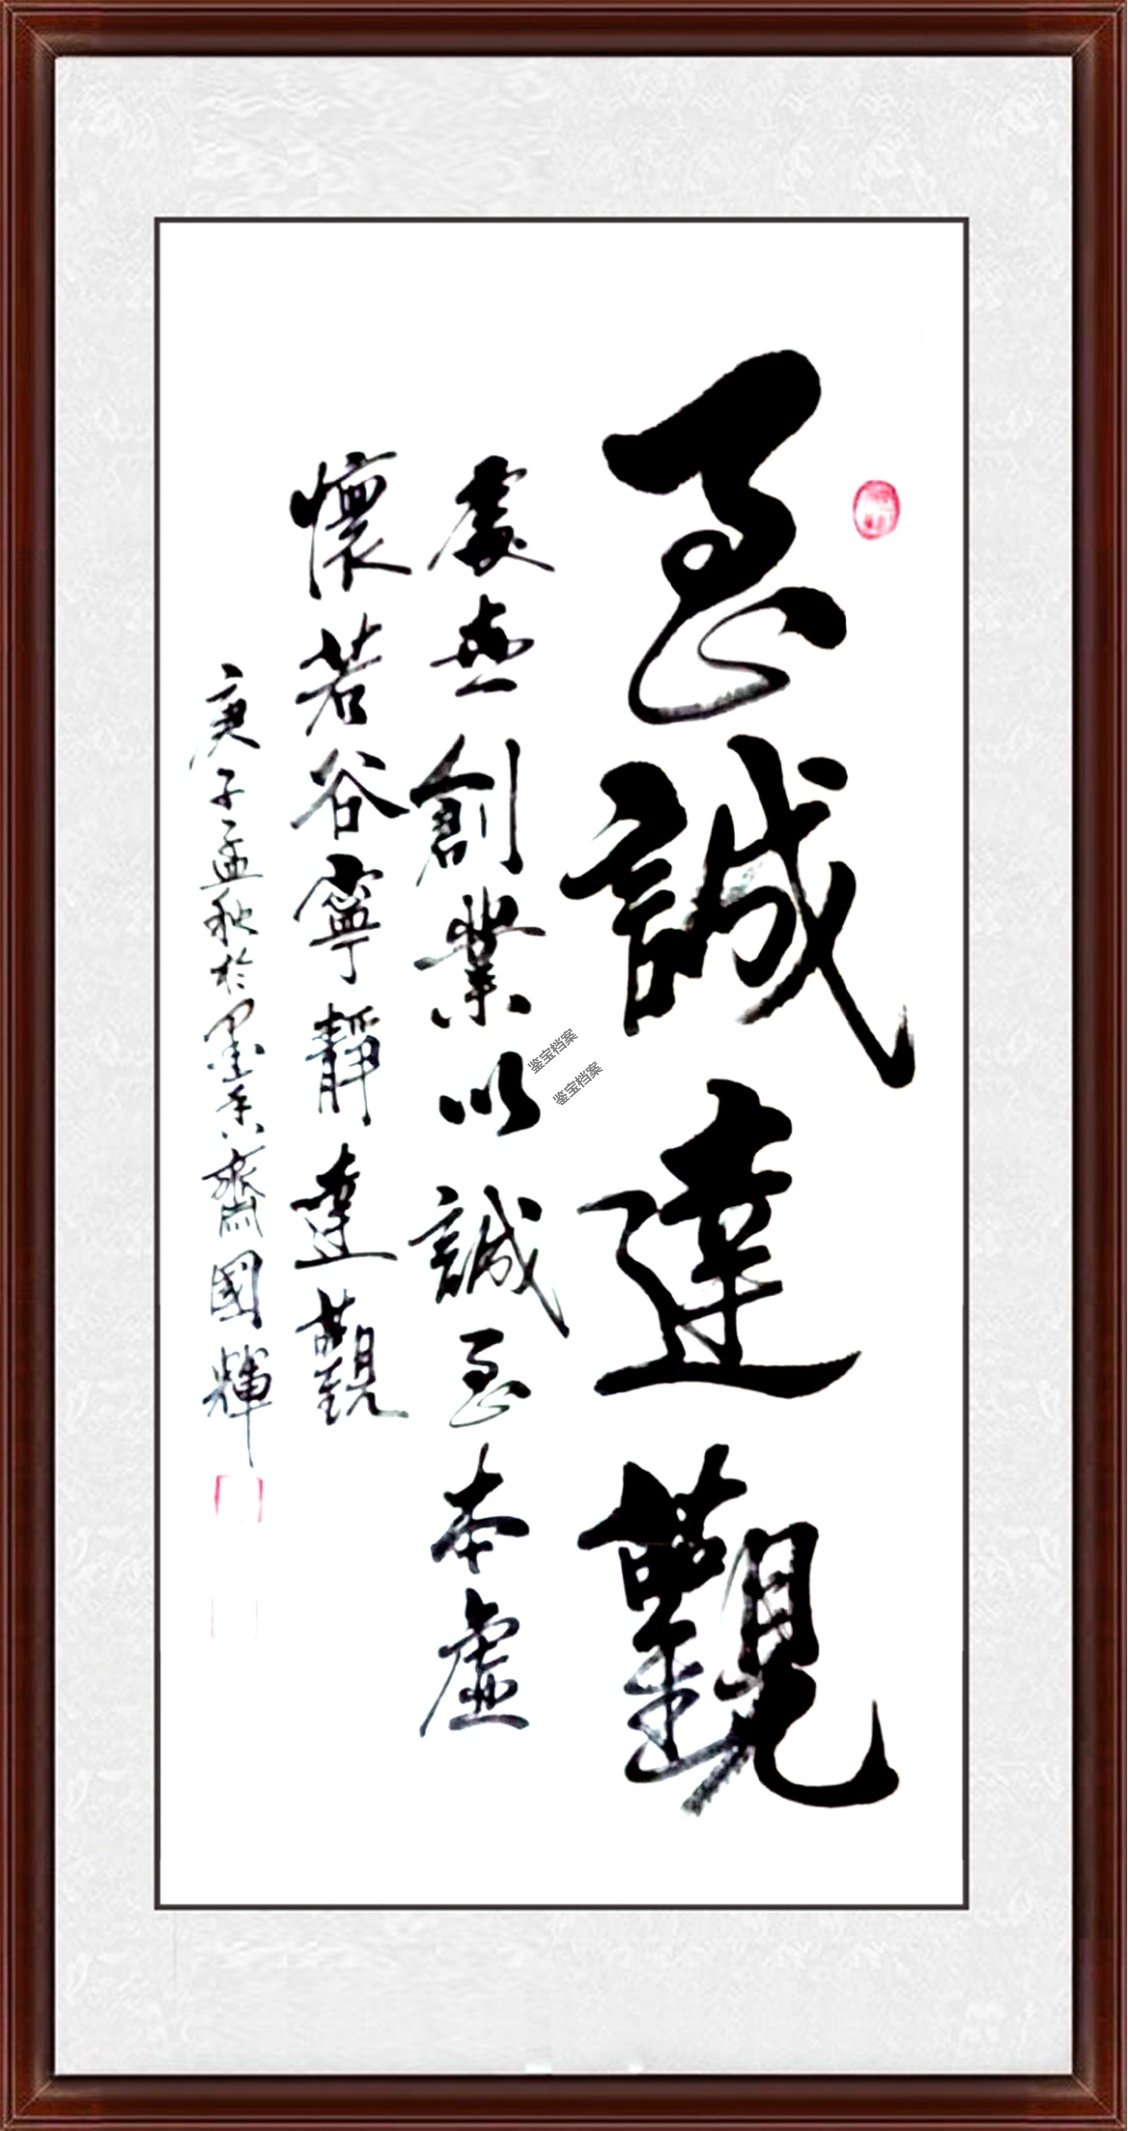 至誠達觀
處世創業以誠至本虛
懷若谷寧靜達觀
庚子孟秋於墨香齋國輝
鉴宝档案
鉴宝档案